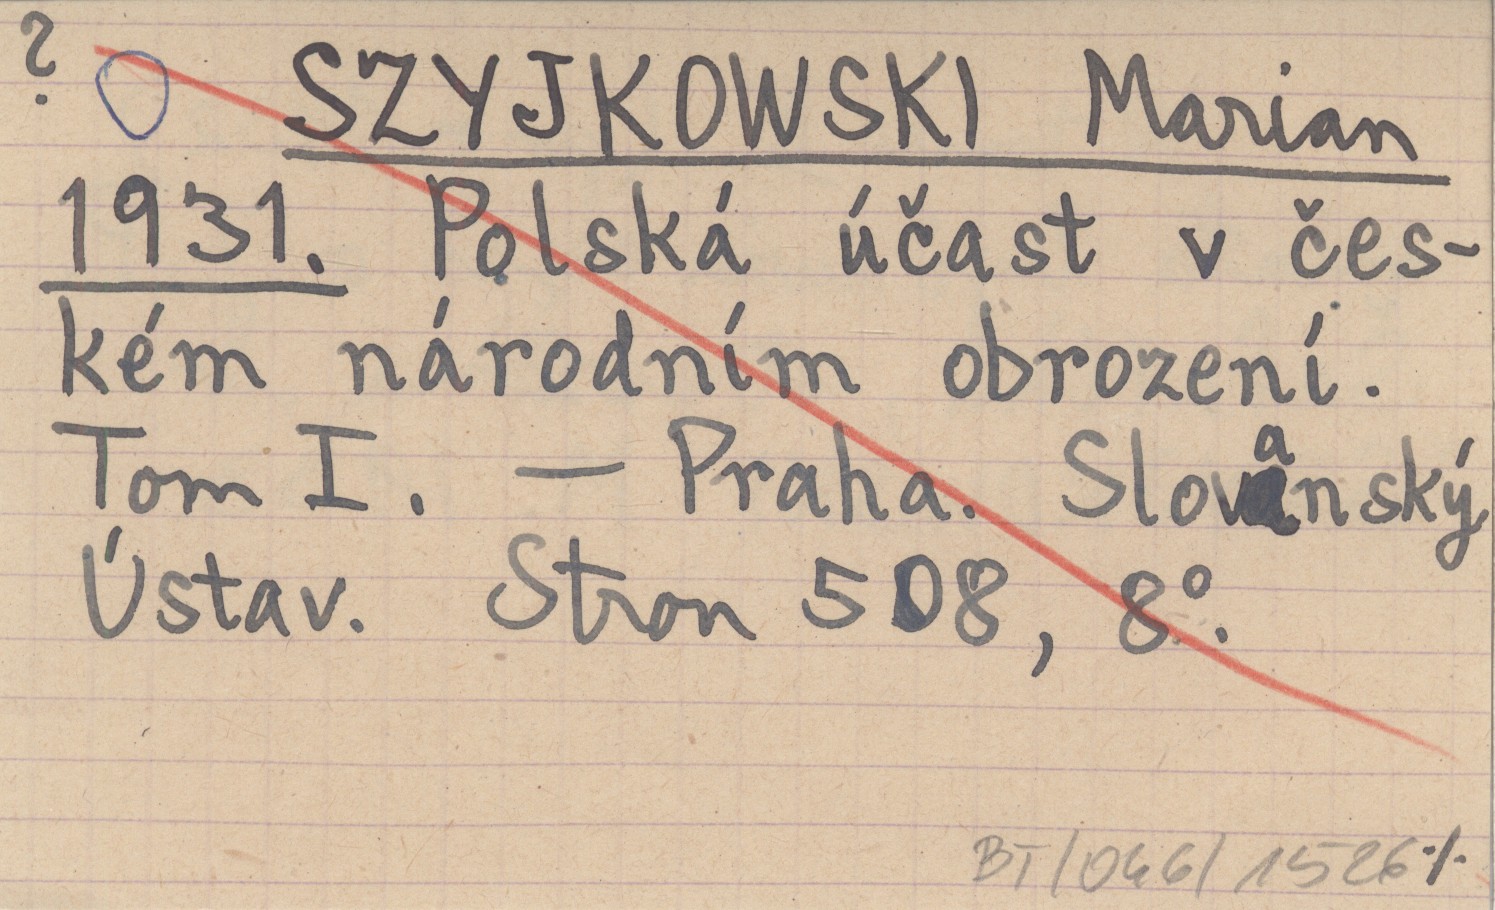 ?
SZYJKOWSKI Marian
1931. Polská účast v čes-
kém národním obrození.
Tom I. — Praha. Slovanský
Ústav. Stron 508, 8°.
BT/046/1526·/·